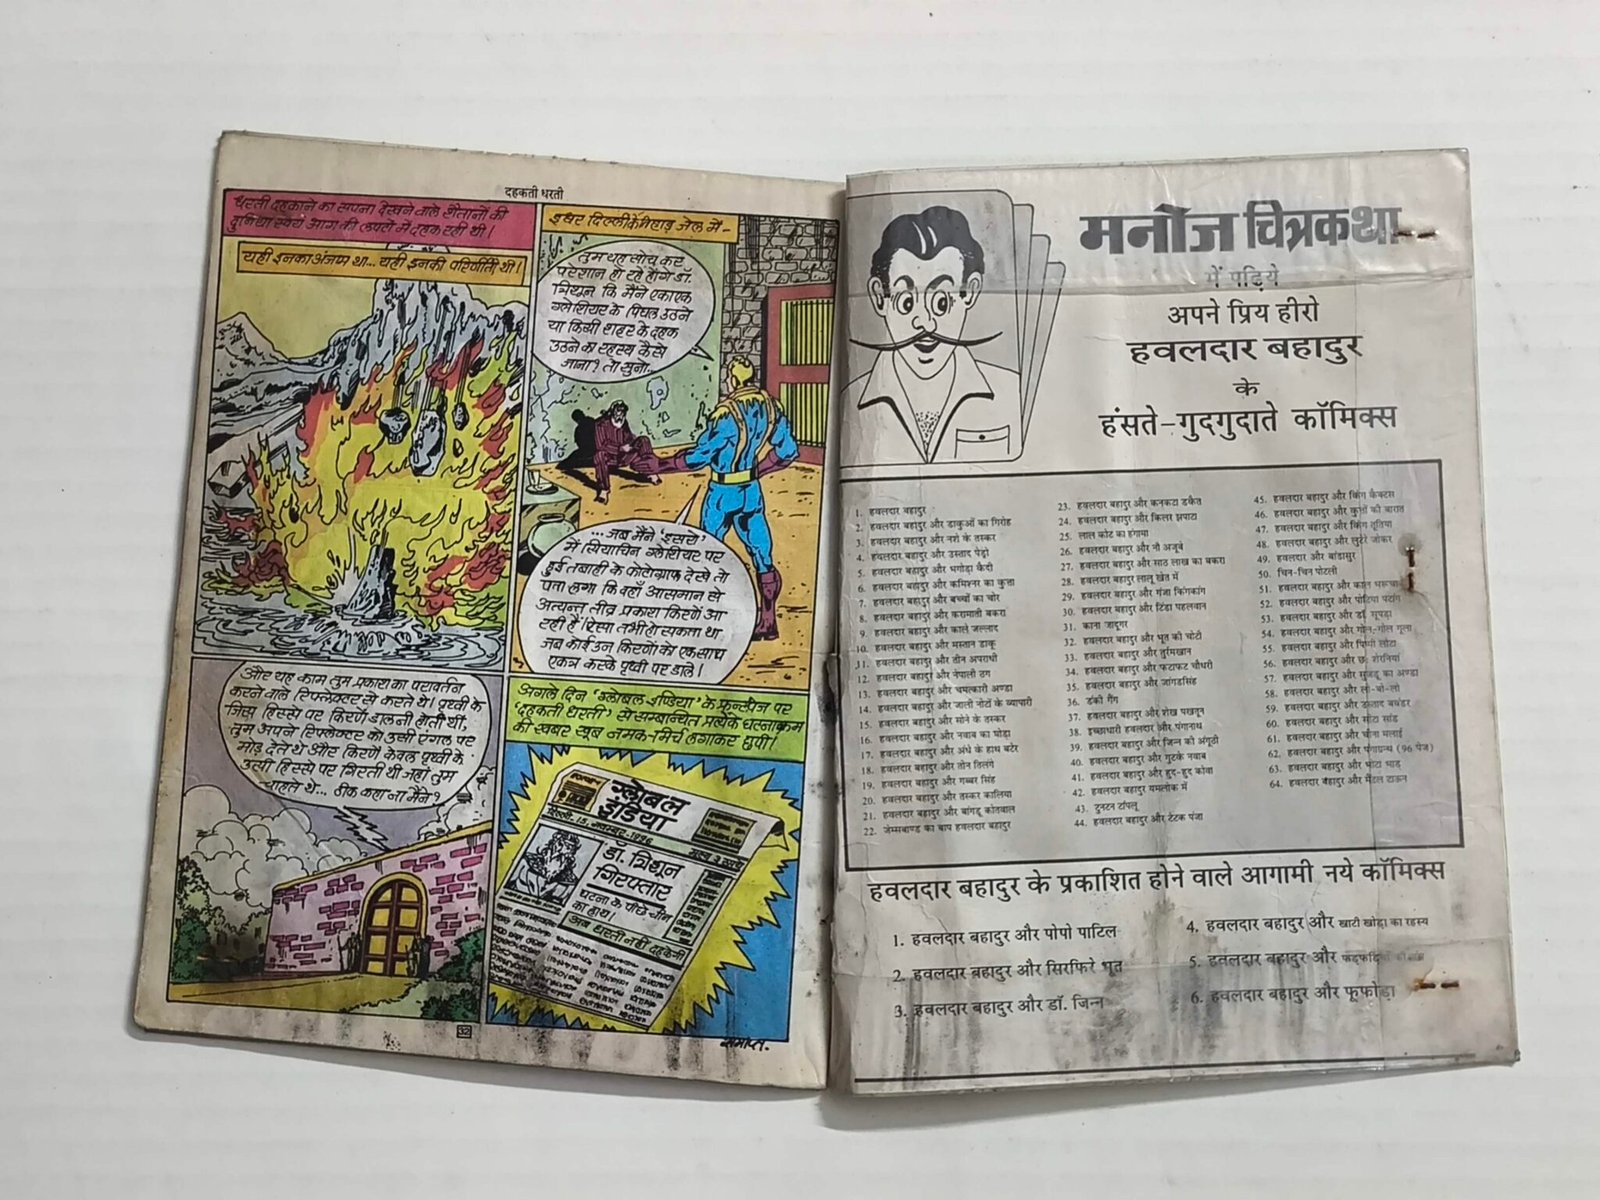 दहकती धरती
धरती दहकाने का सपना देखने वाले शैतानों की
दुनिया स्वयं आग की लपटों में दहक रही थी!
यही इनका अंजाम था... यही इनकी परिणीती थी!
इधर दिल्ली के तिहाड़ जेल में-
तुम यह सोच कर
परेशान हो रहे होंगे डॉ.
कि मैंने एकाएक
ग्लेशियर के पिघल उठने
या किसी शहर के दहक
उठने का रहस्य कैसे
जाना? तो सुनो...
...जब मैंने 'इसरो'
में सियाचिन ग्लेशियर पर
हुई तबाही के फोटोग्राफ देखे तो
पता लगा कि वहाँ आसमान से
अत्यन्त तीव्र प्रकाश किरणें आ
रही हैं। ऐसा तभी हो सकता था
जब कोई उन किरणों को एक साथ
एकत्र करके पृथ्वी पर डाले।
और यह काम तुम प्रकाश का परावर्तन
करने वाले रिफ्लेक्टर से करते थे। पृथ्वी के
जिस हिस्से पर किरणें डालनी होती थीं,
तुम अपने रिफ्लेक्टर को उसी एंगल पर
मोड़ देते थे और किरणें केवल पृथ्वी के
उसी हिस्से पर गिरती थी जहाँ तुम
चाहते थे... ठीक कहा ना मैंने?
अगले दिन 'ग्लोबल इण्डिया' के फ्रन्ट पेज पर
'दहकती धरती' से सम्बन्धित प्रत्येक घटनाक्रम
की खबर खूब नमक-मिर्च लगाकर छपी!
ग्लोबल
इंडिया
डॉ.
गिरफ्तार
घटना के पीछे चीन
का हाथ!
अब धरती नहीं दहकेगी
32
समाप्त.
मनोज चित्रकथा
में पढ़िये
अपने प्रिय हीरो
हवलदार बहादुर
के
हंसते-गुदगुदाते कॉमिक्स
1. हवलदार बहादुर
2. हवलदार बहादुर और डाकुओं का गिरोह
3. हवलदार बहादुर और नशे के तस्कर
4. हवलदार बहादुर और उस्ताद पेड्रो
5. हवलदार बहादुर और भगोड़ा कैदी
6. हवलदार बहादुर और कमिश्नर का कुत्ता
7. हवलदार बहादुर और बच्चों का चोर
8. हवलदार बहादुर और करामाती बकरा
9. हवलदार बहादुर और काले जल्लाद
10. हवलदार बहादुर और मस्तान डाकू
11. हवलदार बहादुर और तीन अपराधी
12. हवलदार बहादुर और नेपाली ठग
13. हवलदार बहादुर और चमत्कारी अण्डा
14. हवलदार बहादुर और जाली नोटों के व्यापारी
15. हवलदार बहादुर और सोने के तस्कर
16. हवलदार बहादुर और नवाब का घोड़ा
17. हवलदार बहादुर और अंधे के हाथ बटेर
18. हवलदार बहादुर और तीन तिलंगे
19. हवलदार बहादुर और गब्बर सिंह
20. हवलदार बहादुर और तस्कर कालिया
21. हवलदार बहादुर और बांगडू कोतवाल
22. जेम्सबाण्ड का बाप हवलदार बहादुर
23. हवलदार बहादुर और कनकटा डकैत
24. हवलदार बहादुर और किलर झपाटा
25. लाल कोट का हंगामा
26. हवलदार बहादुर और नौ अजूबे
27. हवलदार बहादुर और साठ लाख का बकरा
28. हवलदार बहादुर लालू खेत में
29. हवलदार बहादुर और गंजा किंगकांग
30. हवलदार बहादुर और टिंडा पहलवान
31. काना जादूगर
32. हवलदार बहादुर और भूत की चोटी
33. हवलदार बहादुर और तुर्रमखान
34. हवलदार बहादुर और फटाफट चौधरी
35. हवलदार बहादुर और जांगडसिंह
36. डंकी गैंग
37. हवलदार बहादुर और शेख पखतून
38. इच्छाधारी हवलदार और पंगानाथ
39. हवलदार बहादुर और जिन्न की अंगूठी
40. हवलदार बहादुर और गुटके नवाब
41. हवलदार बहादुर और हुद-हुद कौवा
42. हवलदार बहादुर यमलोक में
43. टुनटन टॉपलू
44. हवलदार बहादुर और टेंटक पंजा
45. हवलदार बहादुर और किंग कैक्टस
46. हवलदार बहादुर और कुत्तों की बारात
47. हवलदार बहादुर और किंग तूतिया
48. हवलदार बहादुर और लुटेरे जोकर
49. हवलदार और बांडासुर
50. चिन-चिन पोटली
51. हवलदार बहादुर और काला
52. हवलदार बहादुर और पोटिया पटांग
53. हवलदार बहादुर और डॉ.
54. हवलदार बहादुर और गोल-गोल गूला
55. हवलदार बहादुर और पिद्दी लौटा
56. हवलदार बहादुर और छः शेरनियां
57. हवलदार बहादुर और का अण्डा
58. हवलदार बहादुर और लो-बो-लो
59. हवलदार बहादुर और उस्ताद बवंडर
60. हवलदार बहादुर और मोटा सांड
61. हवलदार बहादुर और चीना मलाई
62. हवलदार बहादुर और पंगाग्रन्थ (96 पेज)
63. हवलदार बहादुर और घोटा भाड़
64. हवलदार बहादुर और मैंटल टाऊन
हवलदार बहादुर के प्रकाशित होने वाले आगामी नये कॉमिक्स
1. हवलदार बहादुर और पोपो पाटिल
2. हवलदार बहादुर और सिरफिरे भूत
3. हवलदार बहादुर और डॉ. जिन्न
4. हवलदार बहादुर और खाटी खोड़ा का रहस्य
5. हवलदार बहादुर और
6. हवलदार बहादुर और फूफोड़ा